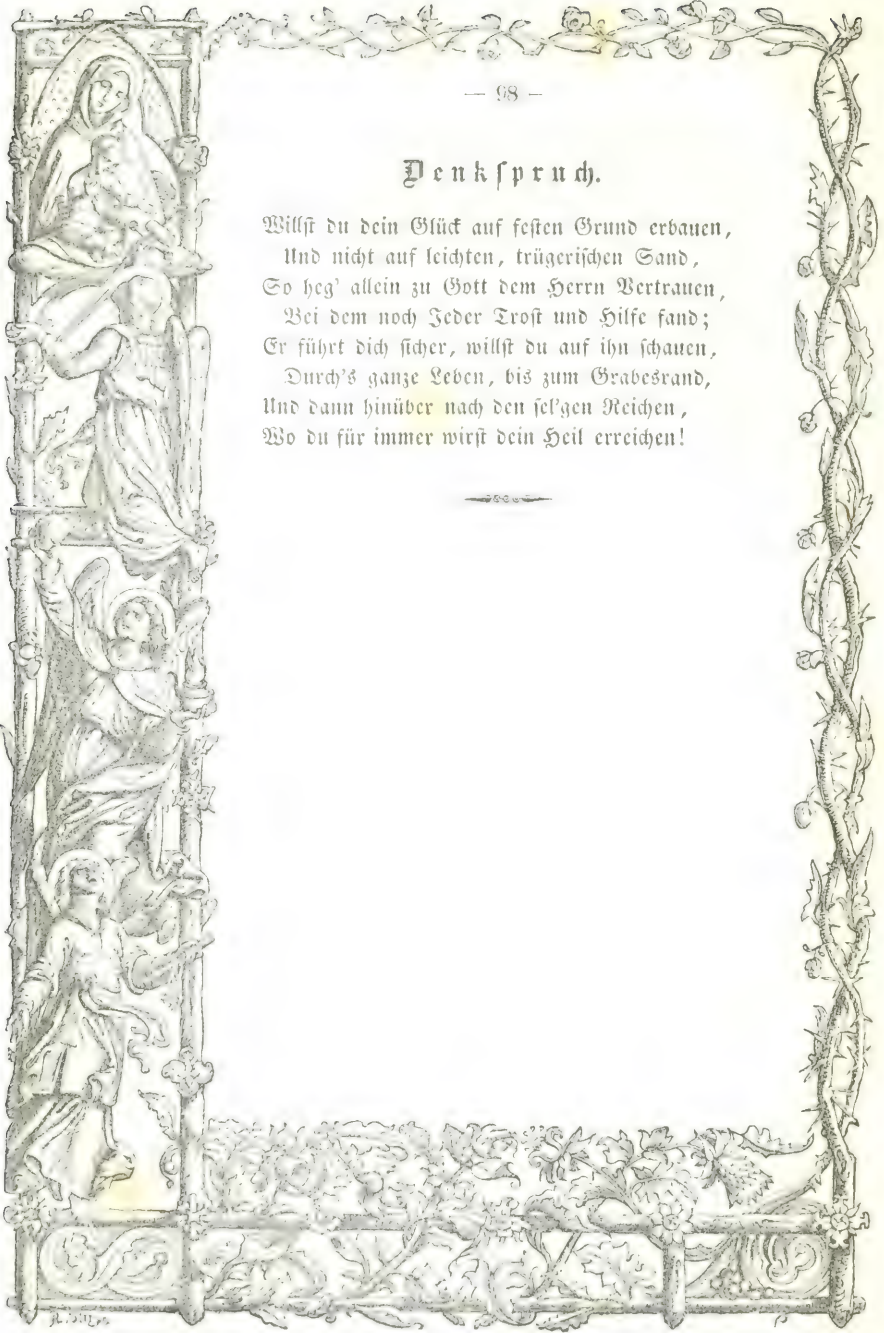 — 98 —
Denkspruch.
Willst du dein Glück auf festen Grund erbauen,
Und nicht auf leichten, trügerischen Sand,
So heg' allein zu Gott dem Herrn Vertrauen,
Bei dem noch Jeder Trost und Hilfe fand;
Er führt dich sicher, willst du auf ihn schauen,
Durch's ganze Leben, bis zum Grabesrand,
Und dann hinüber nach den sel'gen Reichen,
Wo du für immer wirst dein Heil erreichen!